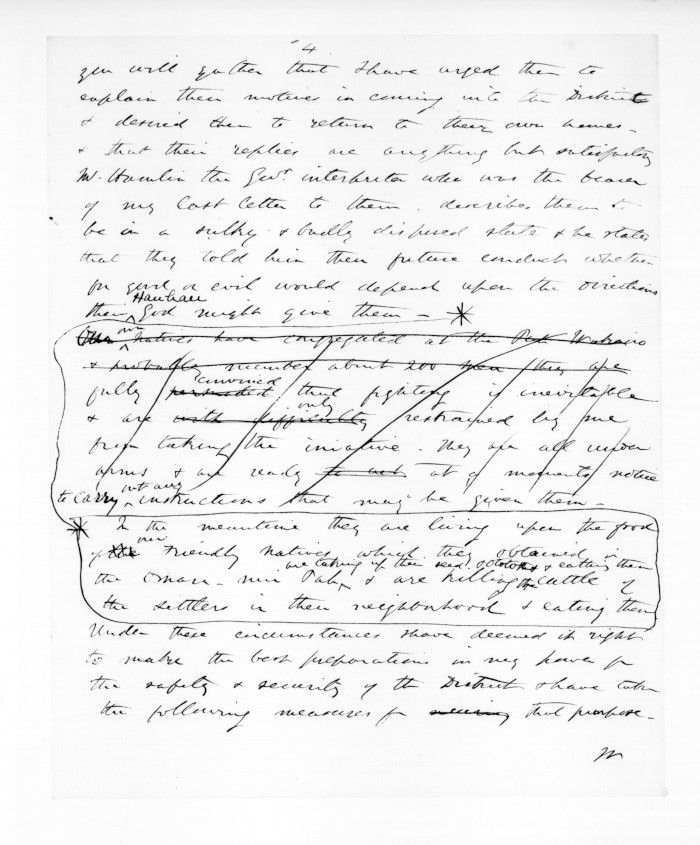 4
you will gather that I have urged them to
explain their motives in coming into the District
& desired them to return to their own homes -
& that their replies are anything but satisfactory
Mr. Hamlin the Govt. interpreter who was the bearer
of my last letter to them. describes them to
be in a sulky & badly disposed state & he states
that they told him their future conduct whether
for good or evil would depend upon the directions
Hauhau
their God might give them -
our
natives have congregated at the
& probably number about 200 men they are
convinced
fully persuaded that fighting is inevitable
only
& are with difficulty restrained by me
from taking the iniative. They are all under
arms & are ready to act at a moments notice
out any
to carry instructions that may be given them -
In the meantime they are living upon the food
our
of Friendly Natives which they obtained in
are taking up their seed potatoes & eating them
the Omaru-nui Pah, & are killing the cattle of
the settlers in their neighborhood & eating them
Under these circumstances I have deemed it right
to make the best preparations in my power for
the safety & security of the District & have taken
the following measures for that purpose -